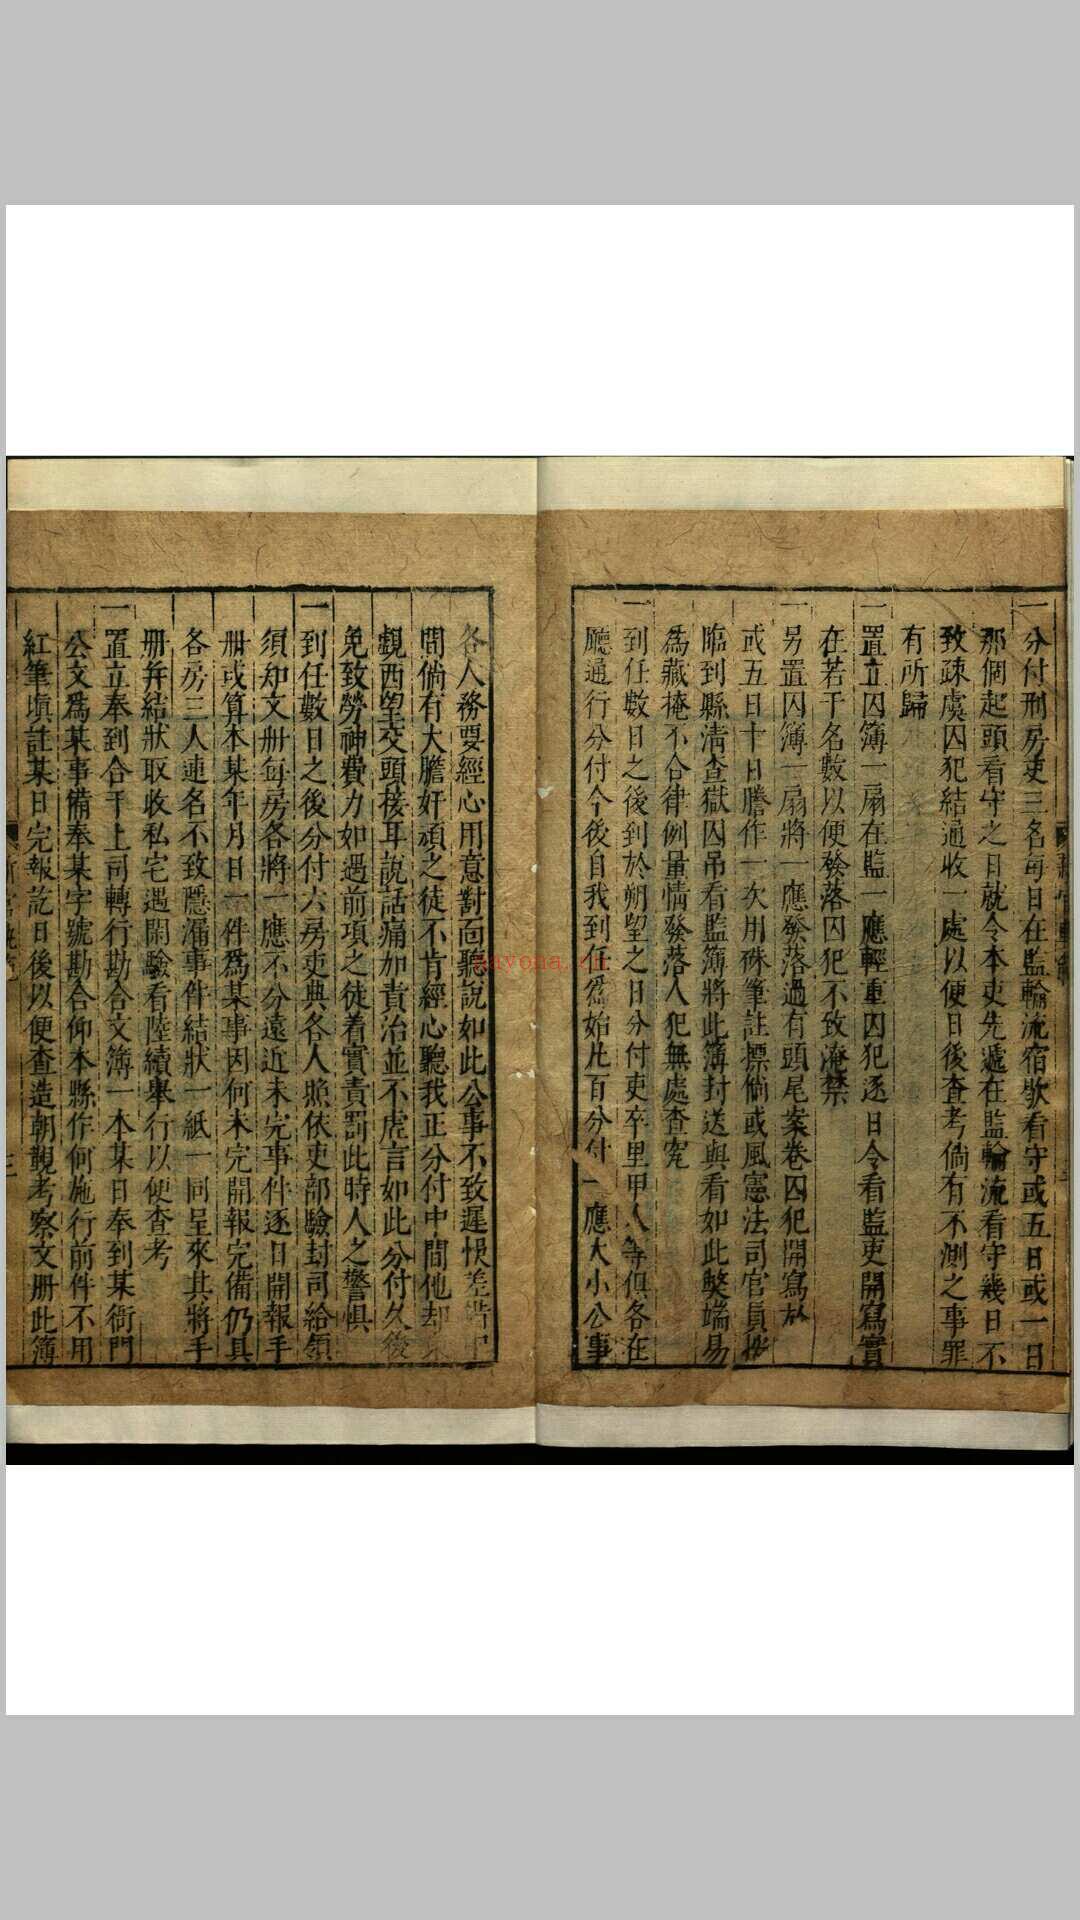 一分付刑房吏三名每日在監輪流宿歇看守或五日或一日
那個起頭看守之日就令本吏先遞在監輪流看守幾日不
致疎虞囚犯結通收一處以便日後查考倘有不測之事罪
有所歸
一置立囚簿一扇在監一應輕重囚犯逐日令看監吏開寫實
在若干名數以便發落囚犯不致淹禁
一另置囚簿一扇將一應發落過有頭尾案卷囚犯開寫於
或五日十日謄作一次用硃筆註摽倘或風憲法司官員抄
臨到縣清查獄囚吊看監簿將此簿封送與看如此弊端易
為藏掩不合律例量情發落人犯無處查究
一到任數日之後到於朔望之日分付吏卒里甲人等俱各在
廳通行分付今後自我到任為始凡百分付一應大小公事
各人務要經心用意對面聽說如此公事不致遲悞差
間倘有大膽奸頑之徒不肯經心聽我正分付中間他却
覷西望交頭接耳說話痛加責治並不虎言如此分付久後
免致勞神費力如遇前項之徒着實責罰此時人之警惧
一到任數日之後分付六房吏典各人照依吏部驗封司給領
須知文冊每房各將一應不分遠近未完事件逐日開報手
冊或算本某年月日一件為某事因何未完開報完備仍具
各房三人連名不致隱漏事件結狀一紙一同呈來其將手
冊并結狀取收私宅遇閑驗看陸續舉行以便查考
一置立奉到合干上司轉行勘合文簿一本某日奉到某衙門
公文為某事備奉某字號勘合仰本縣作何施行前件不用
紅筆塡註某日完報訖日後以便查造朝覲考察文册此簿
aayona.cn